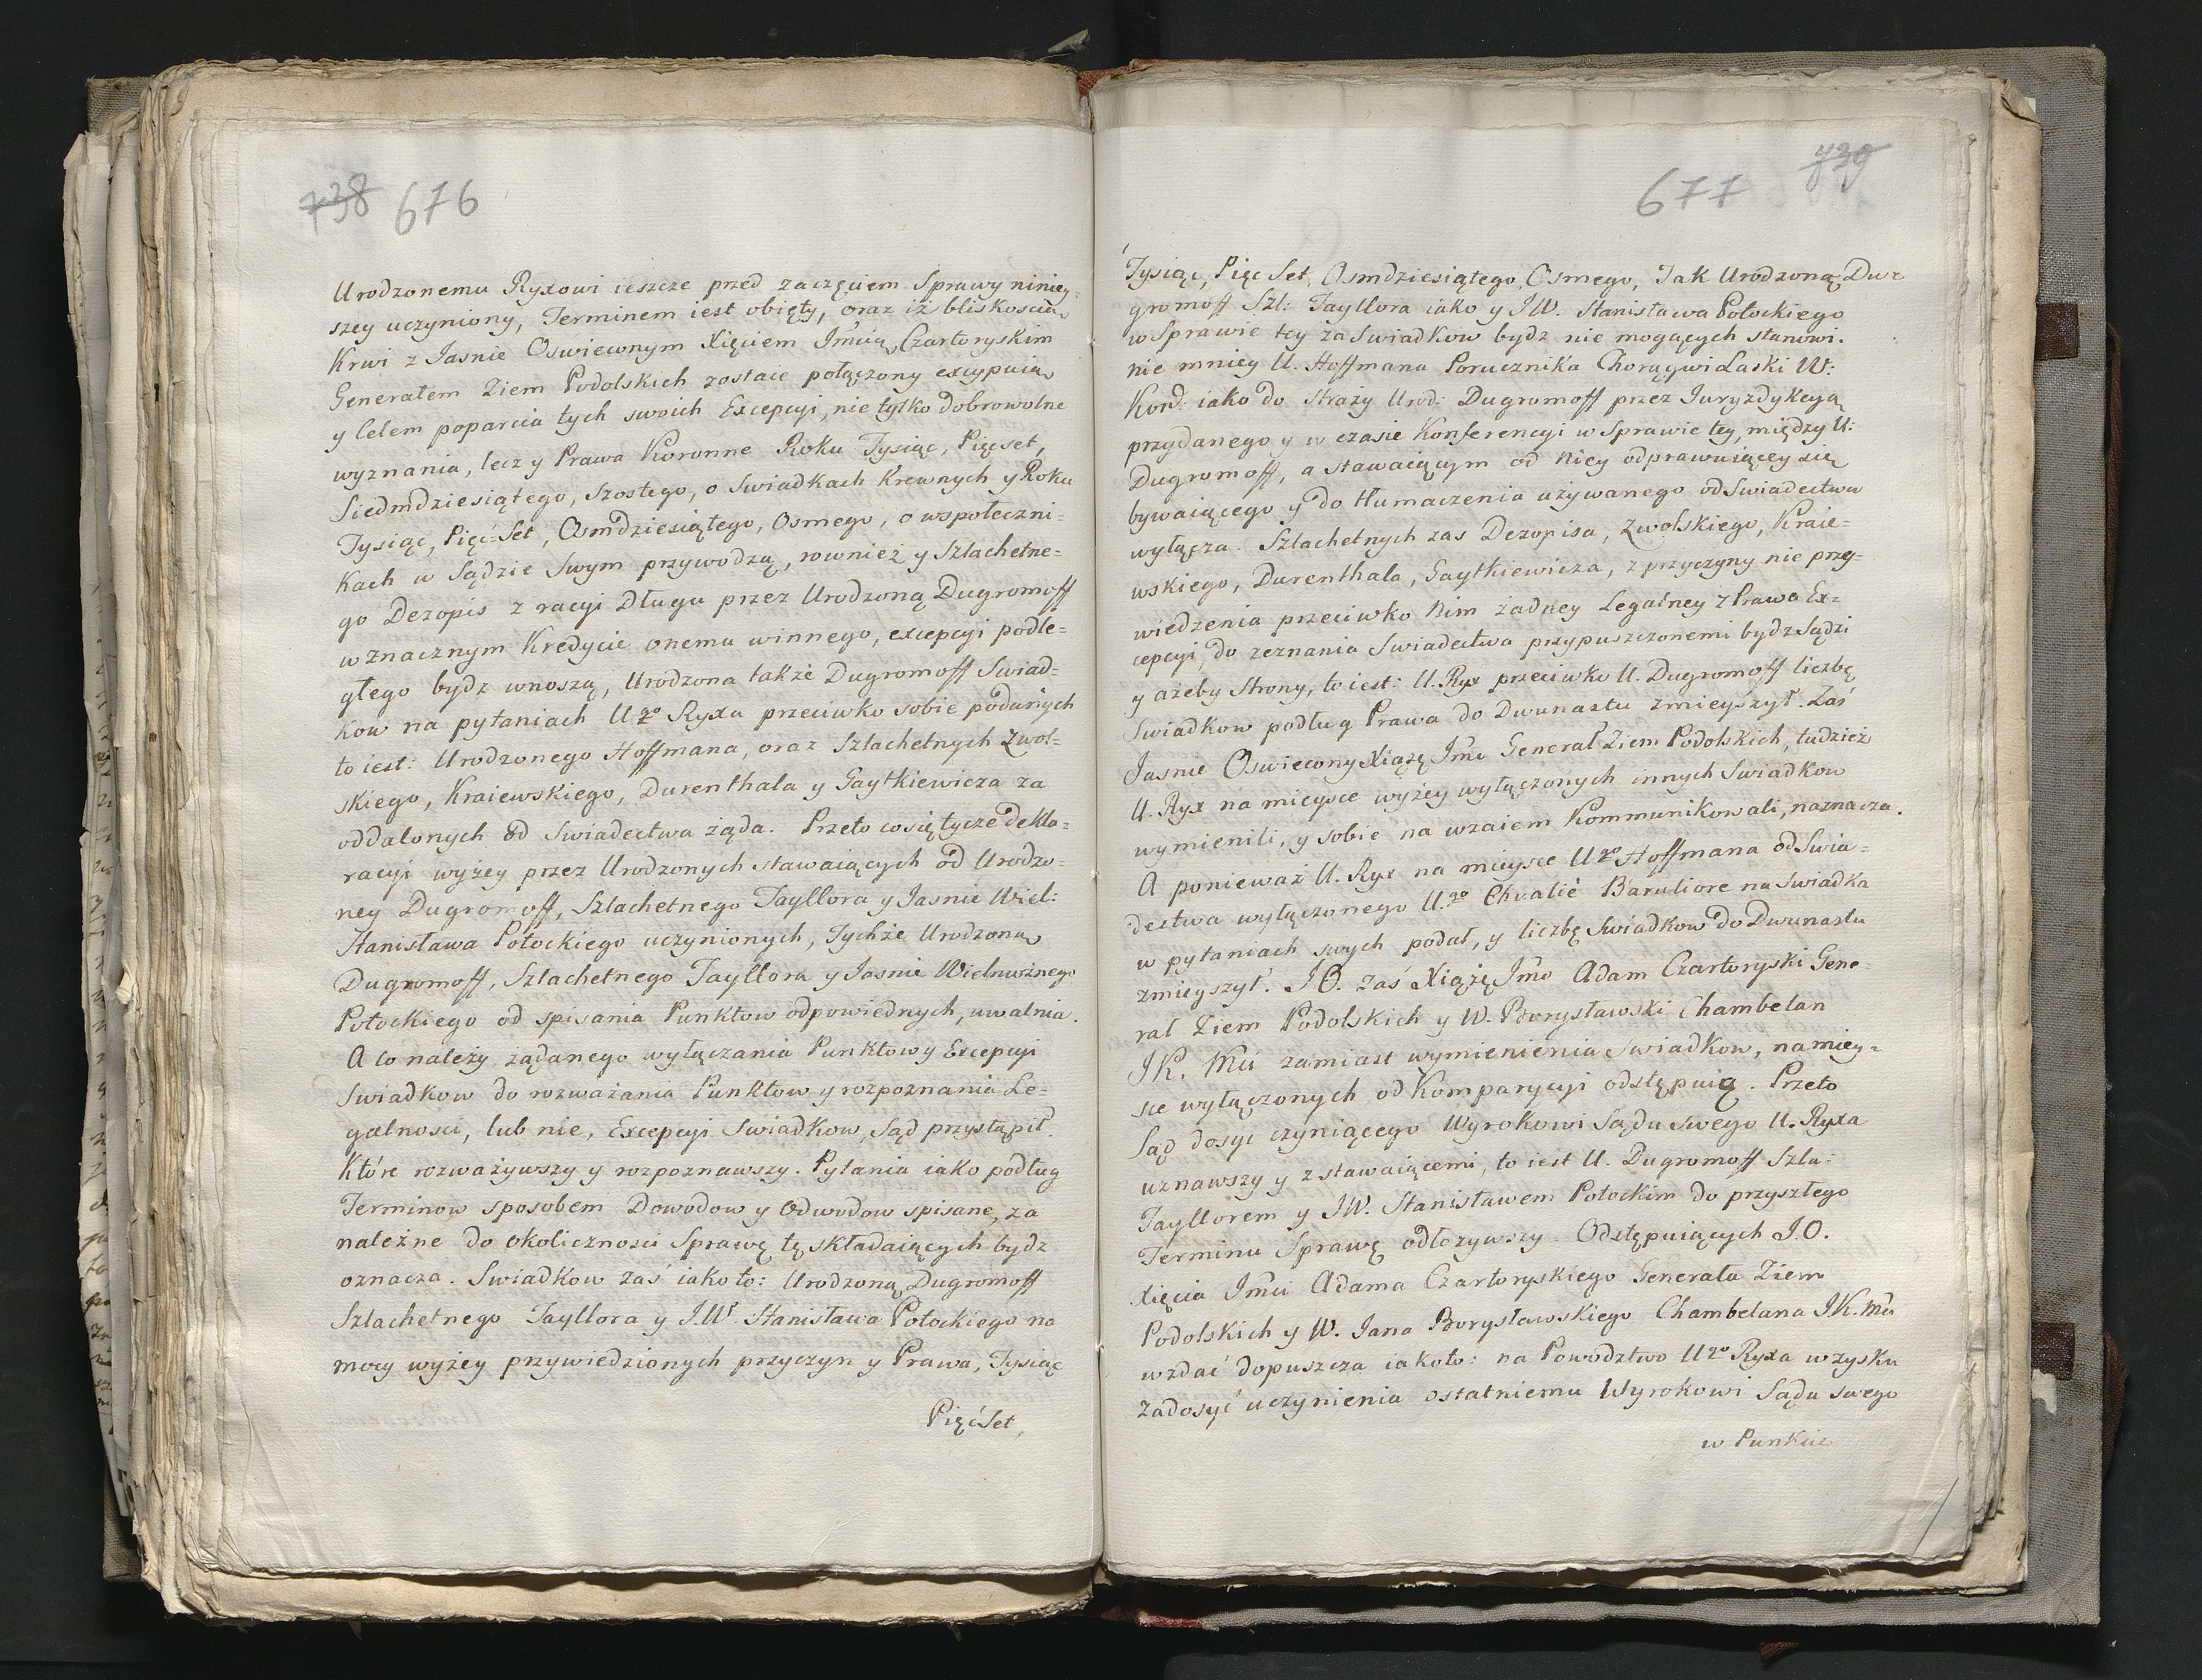 738 676
Urodzonemu Ryxowi ieszcze przed zaczęciem Sprawy niniey=
szey uczyniony, Terminem iest obięty, oraz iż bliskoscią
Krwi z Jasnie Oswieconym Xięciem Jmcią Czartoryskim
Generałem Ziem Podolskich zostaie połączony excypuią
y celem poparcia tych swoich Excepcyi, nie tylko dobrowolne
wyznania, lecz y Prawa Koronne Roku Tysiąc, Pięcset,
Siedmdziesiątego, Szostego, o Swiadkach Krewnych y Roku
Tysiąc, Pięć=Set, Osmdziesiątego, Osmego, o wspołeczni=
kach w Sądzie Swym przywodzą, rownież y Szlachetne=
go Dezopis z racyi Długu przez Urodzoną Dugromoff
w znacznym Kredycie onemu winnego, excepcyi podle=
głego bydz wnoszą, Urodzona także Dugromoff Swiad=
kow na pytaniach Ugo Ryxa przeciwko sobie podanych
to iest: Urodzonego Hoffmana, oraz Szlachetnych Zwol=
skiego, Kraiewskiego, Durenthala y Gaytkiewicza za
oddalonych od Swiadectwa żąda. Przeto co się tycze dekla=
racyi wyżey przez Urodzonych stawaiących od Urodzo=
ney Dugromoff, Szlachetnego Tayllora y Jasnie Wiel:
Stanisława Potockiego uczynionych, Tychże Urodzoną
Dugromoff, Szlachetnego Tayllora y Jasnie Wielmożnego
Potockiego od spisania Punktow odpowiednych, uwalnia.
A co należy żądanego wyłączania Punktow y Excepcyi
Swiadkow do rozważania Punktow y rozpoznania Le=
galnosci, lub nie, Excepcyi Swiadkow, Sąd przystąpił.
Które rozważywszy y rozpoznawszy. Pytania iako podług
Terminow sposobem Dowodow y Odwodow spisane, za
należne do okolicznosci Sprawę tę składaiących bydz
oznacza. Swiadkow zaś iako to: Urodzoną Dugromoff
Szlachetnego Tayllora y J.W. Stanisława Potockiego na
mocy wyżey przywiedzionych przyczyn y Prawa, Tysiąc
PięćSet,
677 739
Tysiąc, Pięc Set, Osmdziesiątego, Osmego, Tak Urodzoną Du=
gromoff Szl: Tayllora iako y JW. Stanisława Potockiego
w Sprawie tey za Swiadkow bydz nie mogących stanowi.
nie mniey U. Hoffmana Porucznika Chorągwi Laski W:
Kord: iako do Straży Urod: Dugromoff przez Juryzdykcyą
przydanego y w czasie Konferencyi w Sprawie tey, między U:
Dugromoff, a stawaiącym od Niey odprawuiącey się
bywaiącego y do tłumaczenia używanego od Swiadectwa
wyłącza. Szlachetnych zas Dezopisa, Zwolskiego, Kraie=
wskiego, Durenthala, Gaytkiewicza, z przyczyny nie przy=
wiedzenia przeciwko Nim żadney Legalney z Prawa Ex=
cepcyi, do zeznania Swiadectwa przypuszczonemi bydz Sądzi
y ażeby Strony, to iest: U. Ryx przeciwko U. Dugromoff liczbę
Swiadkow podług Prawa do Dwunastu zmieyszył. Zaś
Jasnie Oswiecony Xiążę Jmć Generał Ziem Podolskich, tudzież
U. Ryx na mieysce wyżey wyłączonych innych Swiadkow
wymienili, y sobie na wzaiem Kommunikowali, naznacza.
A ponieważ U. Ryx na mieysce Ugo Hoffmana od Swia=
dectwa wyłączonego U.go Chvalié Baruliore na Swiadka
w pytaniach swych podał, y liczbę Swiadkow do Dwunastu
zmieyszył. J O. zaś Xiążę Jmć Adam Czartoryski Gene=
rał Ziem Podolskich y W. Borysławski Chambelan
JK. Mci zamiast wymienienia Swiadkow, na miey=
sce wyłączonych od Komparycyi odstępuią. Przeto
Sąd dosyc czyniącego Wyrokowi Sądu swego U. Ryxa
uznawszy y z stawaiącemi, to iest U. Dugromoff Szla:
Tayllorem y JW. Stanisławem Potockim do przyszłego
Terminu Sprawę odłożywszy. Odstępuiących J.O.
Xięcia Jmci Adama Czartoryskiego Generała Ziem
Podolskich y W. Jana Borysławskiego Chambelana JK. Mci
wzdać dopuszcza iako to: na Powodztwo Ugo Ryxa w zysku
zadosyć uczynienia ostatniemu Wyrokowi Sądu swego
w Punkcie